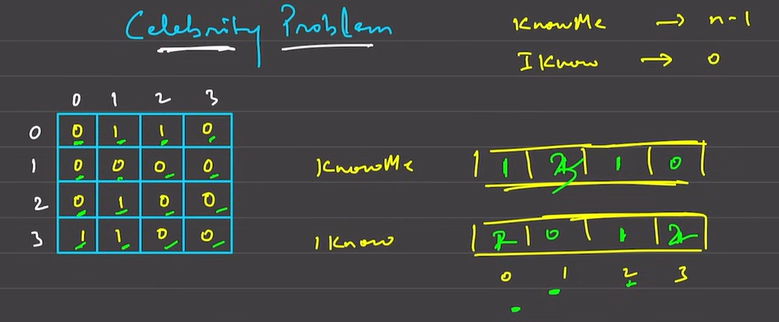 Celebrity Problem
KnowMe → n-1
I Know → 0
0 1 2 3
0 0 1 1 0
1 0 0 0 0
2 0 1 0 0
3 1 1 0 0
KnowMe 1 1 0
I Know 0 1 2
0 1 2 3